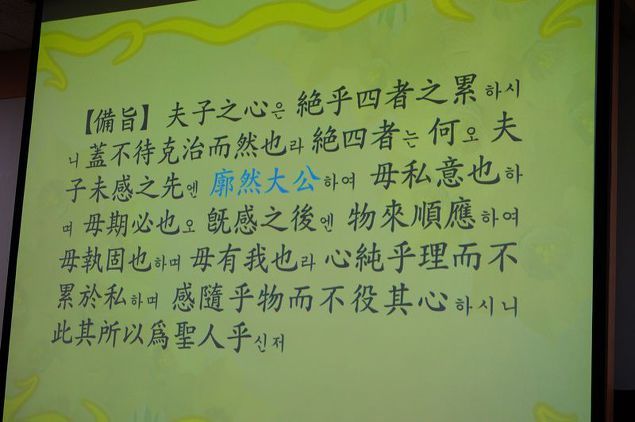 【備旨】 夫子之心은 絶乎四者之累하시
니 蓋不待克治而然也라 絶四者는 何오 夫
子未感之先엔 廓然大公하여 毋私意也하
며 毋期必也오 旣感之後엔 物來順應하여
毋執固也하며 毋有我也라 心純乎理而不
累於私하며 感隨乎物而不役其心하시니
此其所以爲聖人乎신저